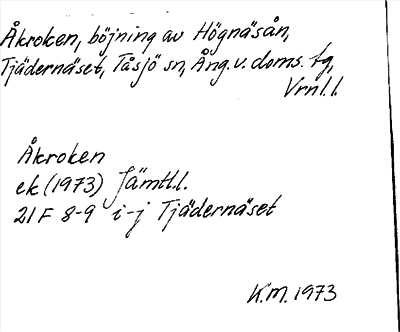 Åkroken, böjning av Högnäsån,
Tjädernäset, Tåsjö sn, Ång. v. doms. tg,
Vrnl. l.
Åkroken
ek (1973) Jämtl. l.
21F 8-9 i-j Tjädernäset
K.M. 1973